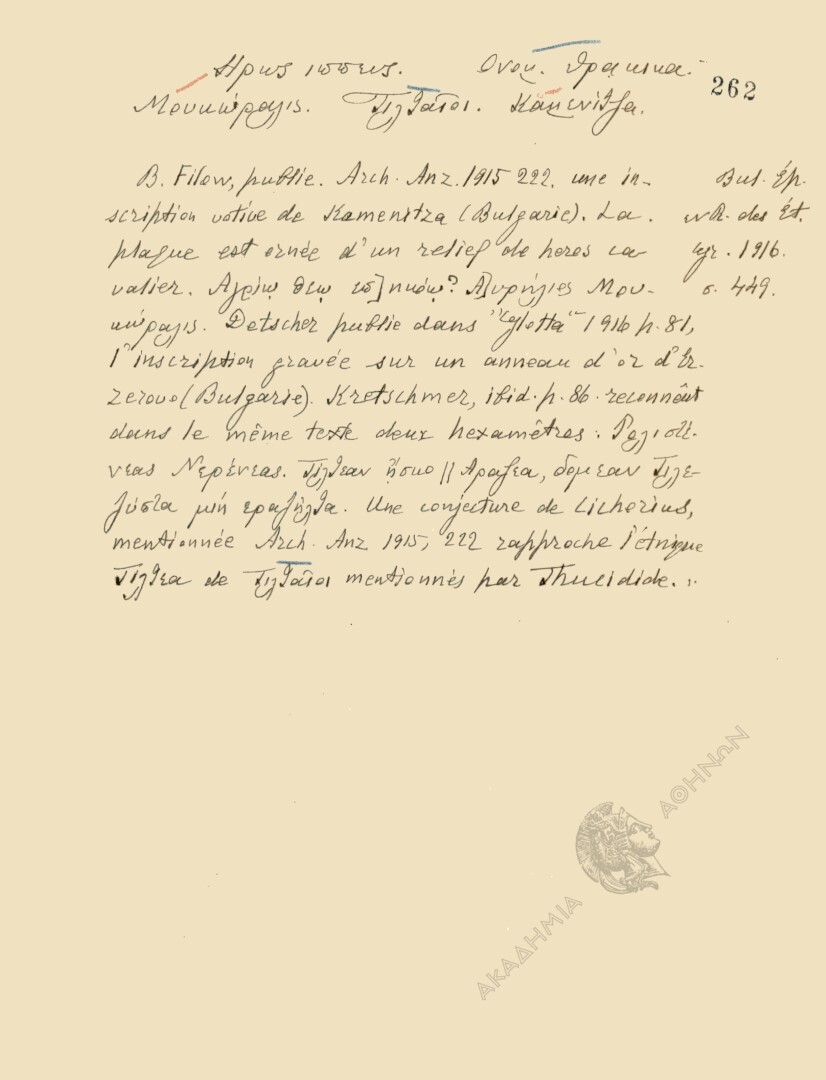 Ηρως ιππευς. Ονομ. θρακικα.
262
Μουκώραλις. Τιλθαῖοι. Κάμενιτζα.
B. Filow, publie. Arch. Anz. 1915 222. une in-
scription votive de Kamenitza (Bulgarie). La.
plaque est ornée d'un relief de heros ca-
valier. Αγρίῳ θεῳ επ]ηκόῳ? Α]υρήλιες Μου-
κώραλις. Detscher publie dans "Glotta" 1916 p. 81,
l'inscription gravée sur un anneau d'or d'Er-
zerovo (Bulgarie). Kretschmer, ibid. p. 86. reconnêut
dans le même texte deux hexamêtres. Ρολιστε-
νεας Νερένεας. Τιλτεαν ἤσκο || Αραζεα, δομεαν Τιλε-
ζύπτα μιή εραζήλτα. Une conjecture de Cichorius,
mentionnée Arch. Anz 1915, 222 rapproche l'étnique
Τιλτεα de Τιλθαῖοι mentionnés par Thucidide.
Bul. Ép.
εν R. des Ét.
gr. 1916.
σ. 449.
ΑΚΑΔΗΜΙΑ ΑΘΗΝΩΝ